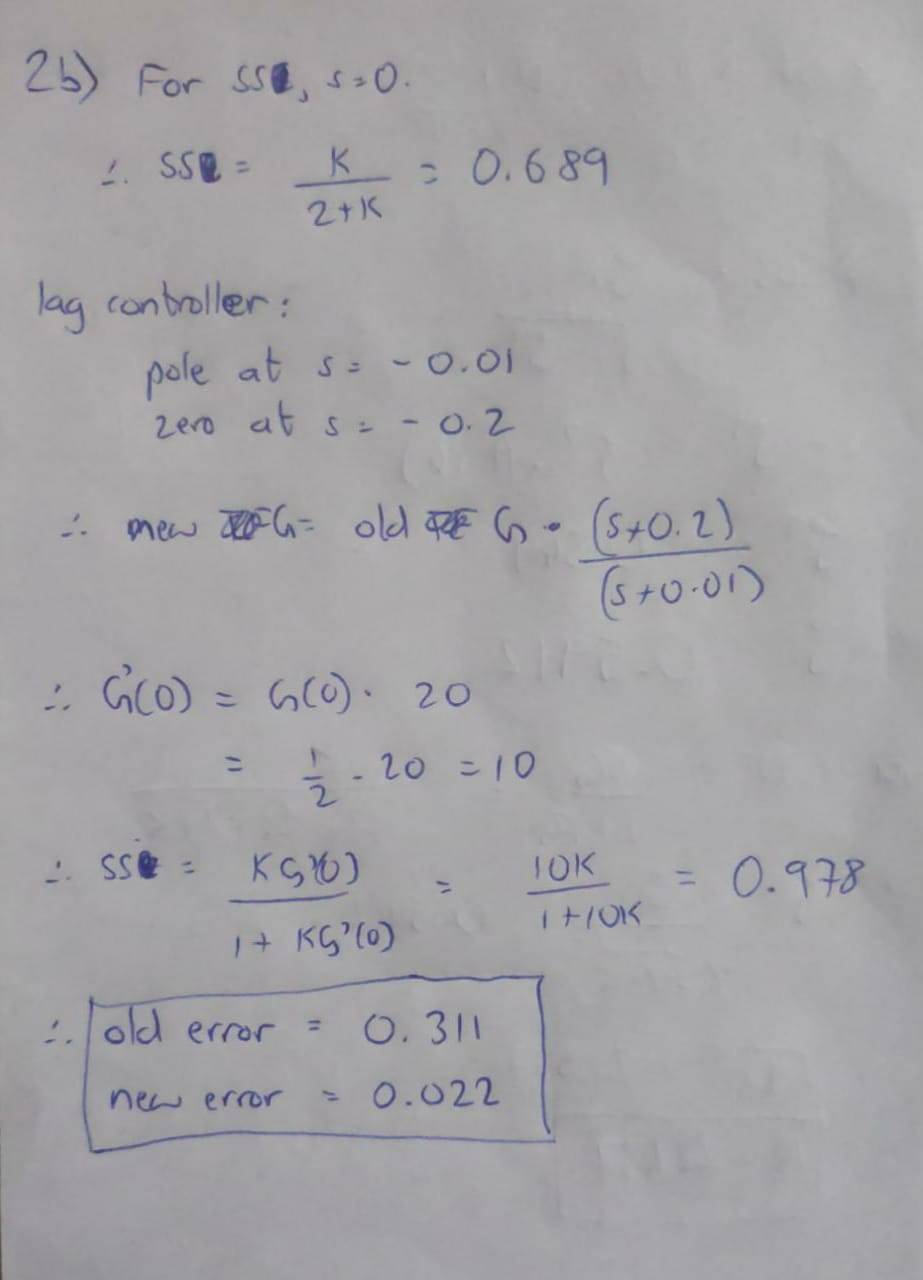 2b) For ss, s=0.
∴ ss = K/(2+K) = 0.689
lag controller:
pole at s = -0.01
zero at s = -0.2
∴ new G = old G · (s+0.2)/(s+0.01)
∴ G'(0) = G(0) · 20
= 1/2 · 20 = 10
∴ ss = KG'(0)/(1 + KG'(0)) = 10K/(1+10K) = 0.978
∴ old error = 0.311
new error = 0.022